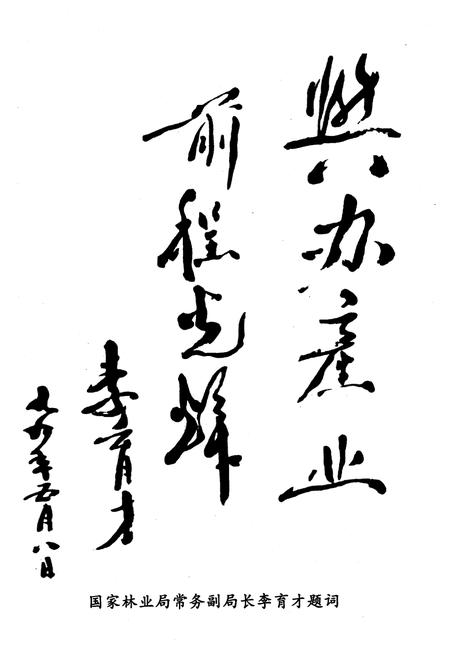 興办產业
前程光辉
李育才
年五月八日
国家林业局常务副局长李育才题词